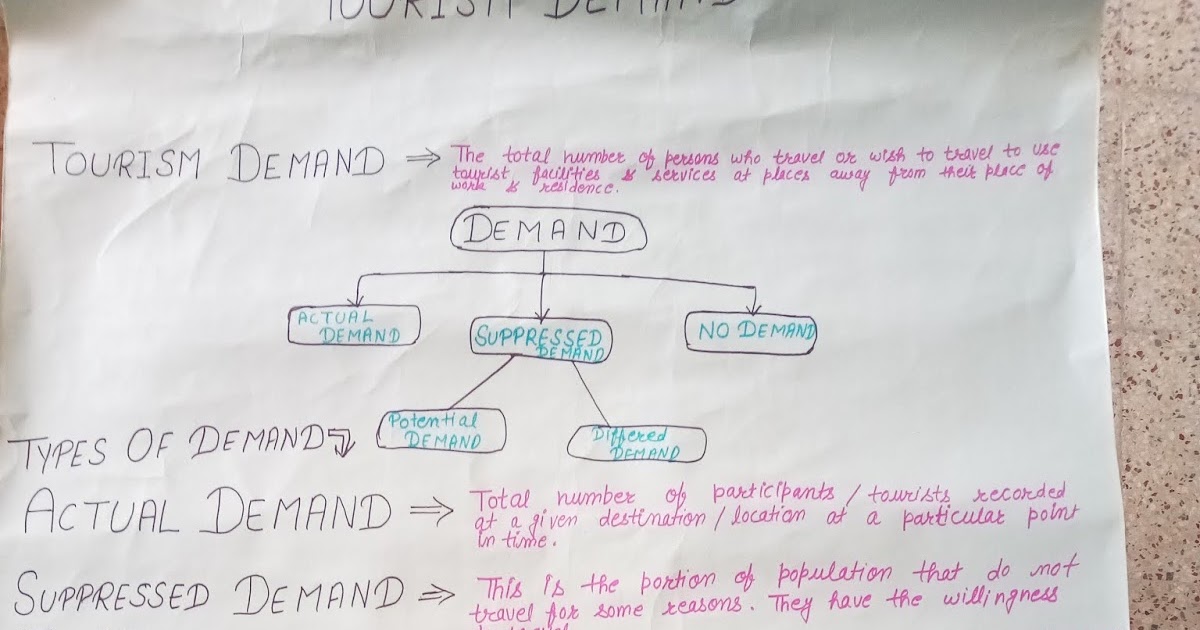 TOURISM DEMAND
TOURISM DEMAND ⇒ The total number of persons who travel or wish to travel to use
tourist facilities & services at places away from their place of
work & residence.
DEMAND
ACTUAL
DEMAND
SUPPRESSED
DEMAND
NO DEMAND
Potential
DEMAND
Differed
DEMAND
TYPES OF DEMAND
ACTUAL DEMAND ⇒ Total number of participants / tourists recorded
at a given destination / location at a particular point
in time.
SUPPRESSED DEMAND ⇒ This is the portion of population that do not
travel for some reasons. They have the willingness